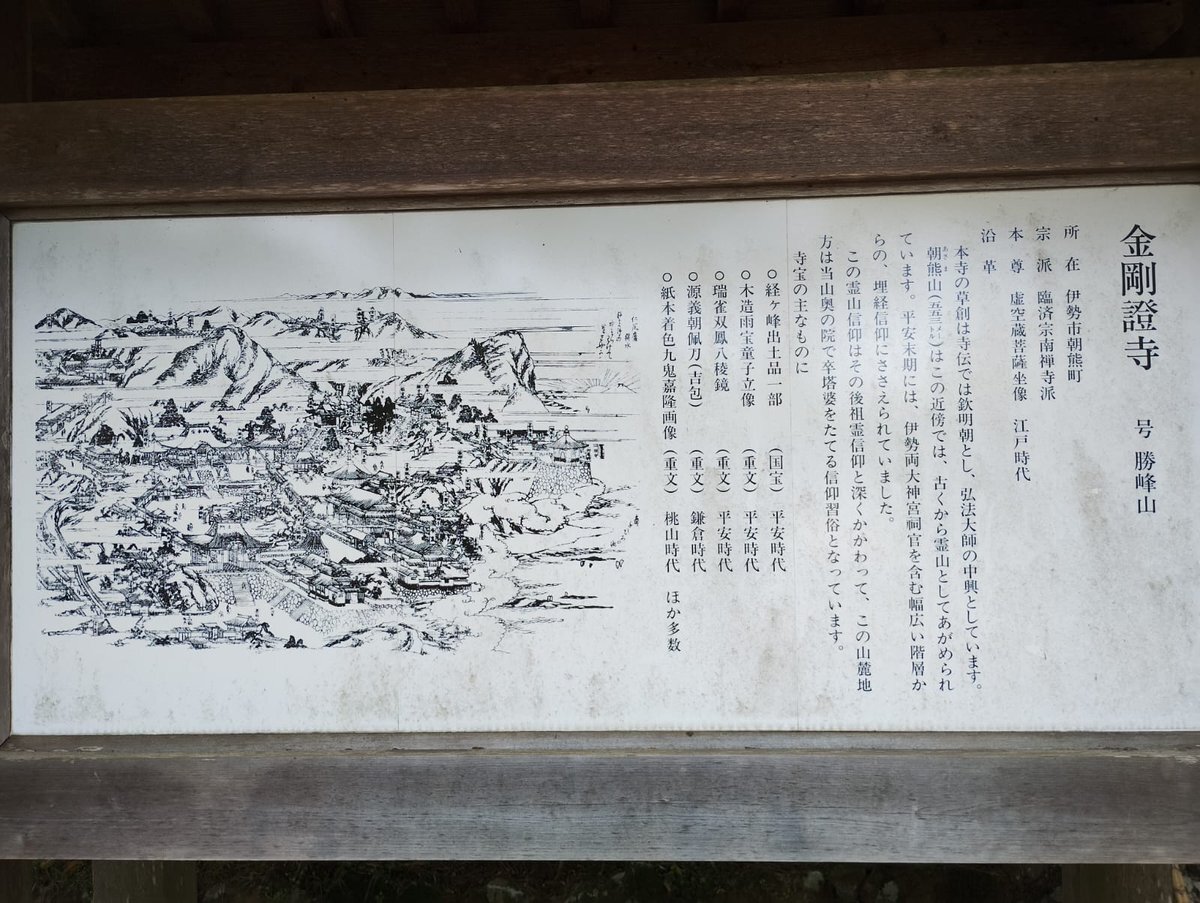 金剛證寺 号 勝峰山
所在 伊勢市朝熊町
宗派 臨済宗南禅寺派
本尊 虚空蔵菩薩坐像 江戸時代
沿革
本寺の草創は寺伝では欽明朝とし、弘法大師の中興としています。
朝熊山(五五三㍍)はこの近傍では、古くから霊山としてあがめられ
あさま
ています。平安末期には、伊勢両大神宮祠官を含む幅広い階層か
らの、埋経信仰にささえられていました。
この霊山信仰はその後祖霊信仰と深くかかわって、この山麓地
方は当山奥の院で卒塔婆をたてる信仰習俗となっています。
寺宝の主なものに
○経ヶ峰出土品一部 (国宝) 平安時代
○木造雨宝童子立像 (重文) 平安時代
○瑞雀双鳳八稜鏡 (重文) 平安時代
○源義朝佩刀(吉包) (重文) 鎌倉時代
○紙本着色九鬼嘉隆画像 (重文) 桃山時代 ほか多数